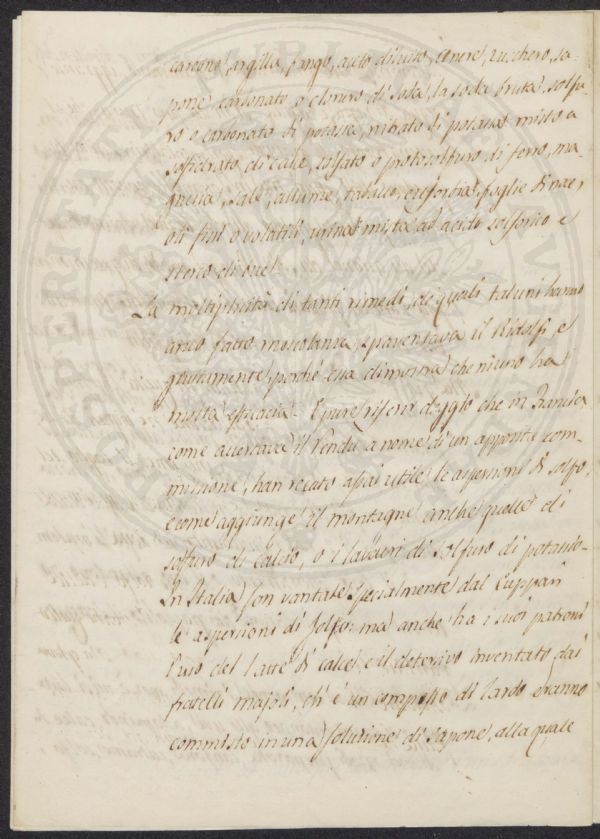 carbone, argilla, fango, aceto diluito, cenere, zucchero, sa-
pone, carbonato o cloruro di soda, la soda bruta, solfu-
ro o carbonato di potassa, nitrato di potassa misto a
solfidrato di calce, solfato o protosolfuro di ferro, ma-
gnesia, sale, allume, tabacco, euforbia, foglie di noce
olî fissi o volatili, urina mista ad acido solforico e
sterco di bue.
La moltiplicità di tanti rimedi, de' quali taluni hanno
anco fatto mescolanza, spaventava il Ridolfi e
giustamente, perché essa dimostra che niuno ha
molta efficacia. Epure riferir deggio che in Francia
come accertava il Rendu a nome di un apposita com-
missione, han recato assai utile le aspersioni di solfo,
e come aggiunge il Montagne anche quelle di
solfuro di calcio, o i lavacri di solfuro di potassio.
In Italia son vantate specialmente dal Cuppari
le aspersioni di solfo: ma anche ha i suoi patroni
l'uso del latte di calce, e il detersivo inventato dai
fratelli Majoli, ch'è un composto di lardo
commisto in una soluzione di sapone, alla quale